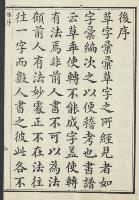 後序
草字彙彙草字之所經見者如
字彙編次之以便稽考也書譜
云草乖使轉不能成字蓋使轉
有法焉非前人書不可為法
顧前人有法妙處正不在法徃
徃一字而數人書之彼此各不